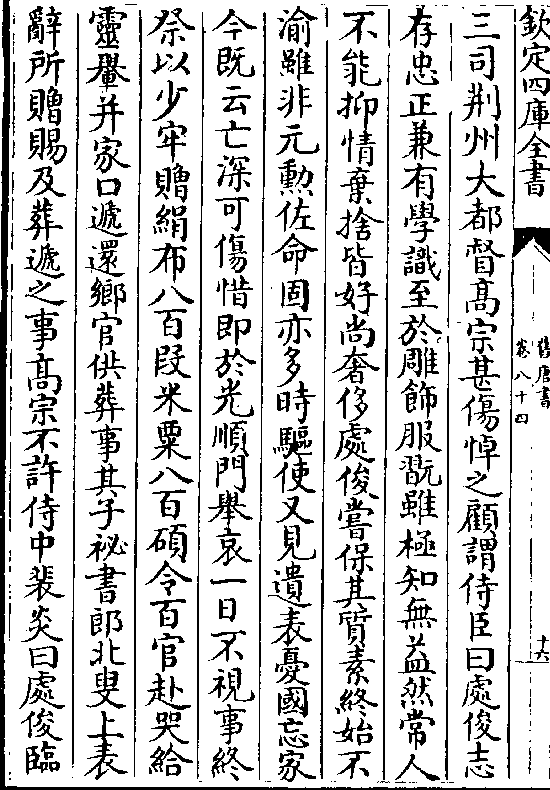 欽定四庫全書
舊唐書
卷八十四
十六
三司荆州大都督髙宗甚傷悼之顧謂侍臣曰處俊志
存忠正兼有學識至於雕飾服翫雖極知無益然常人
不能抑情棄捨皆好尚奢侈處俊嘗保其質素終始不
渝雖非元勲佐命固亦多時驅使又見遺表憂國忘家
今既云亡深可傷惜即於光順門舉哀一日不視事終
祭以少牢贈絹布八百叚米粟八百碩令百官赴哭給
靈轝并家口遞還鄉官供葬事其子祕書郎北叟上表
辭所贈賜及葬遞之事髙宗不許侍中裴炎曰處俊臨